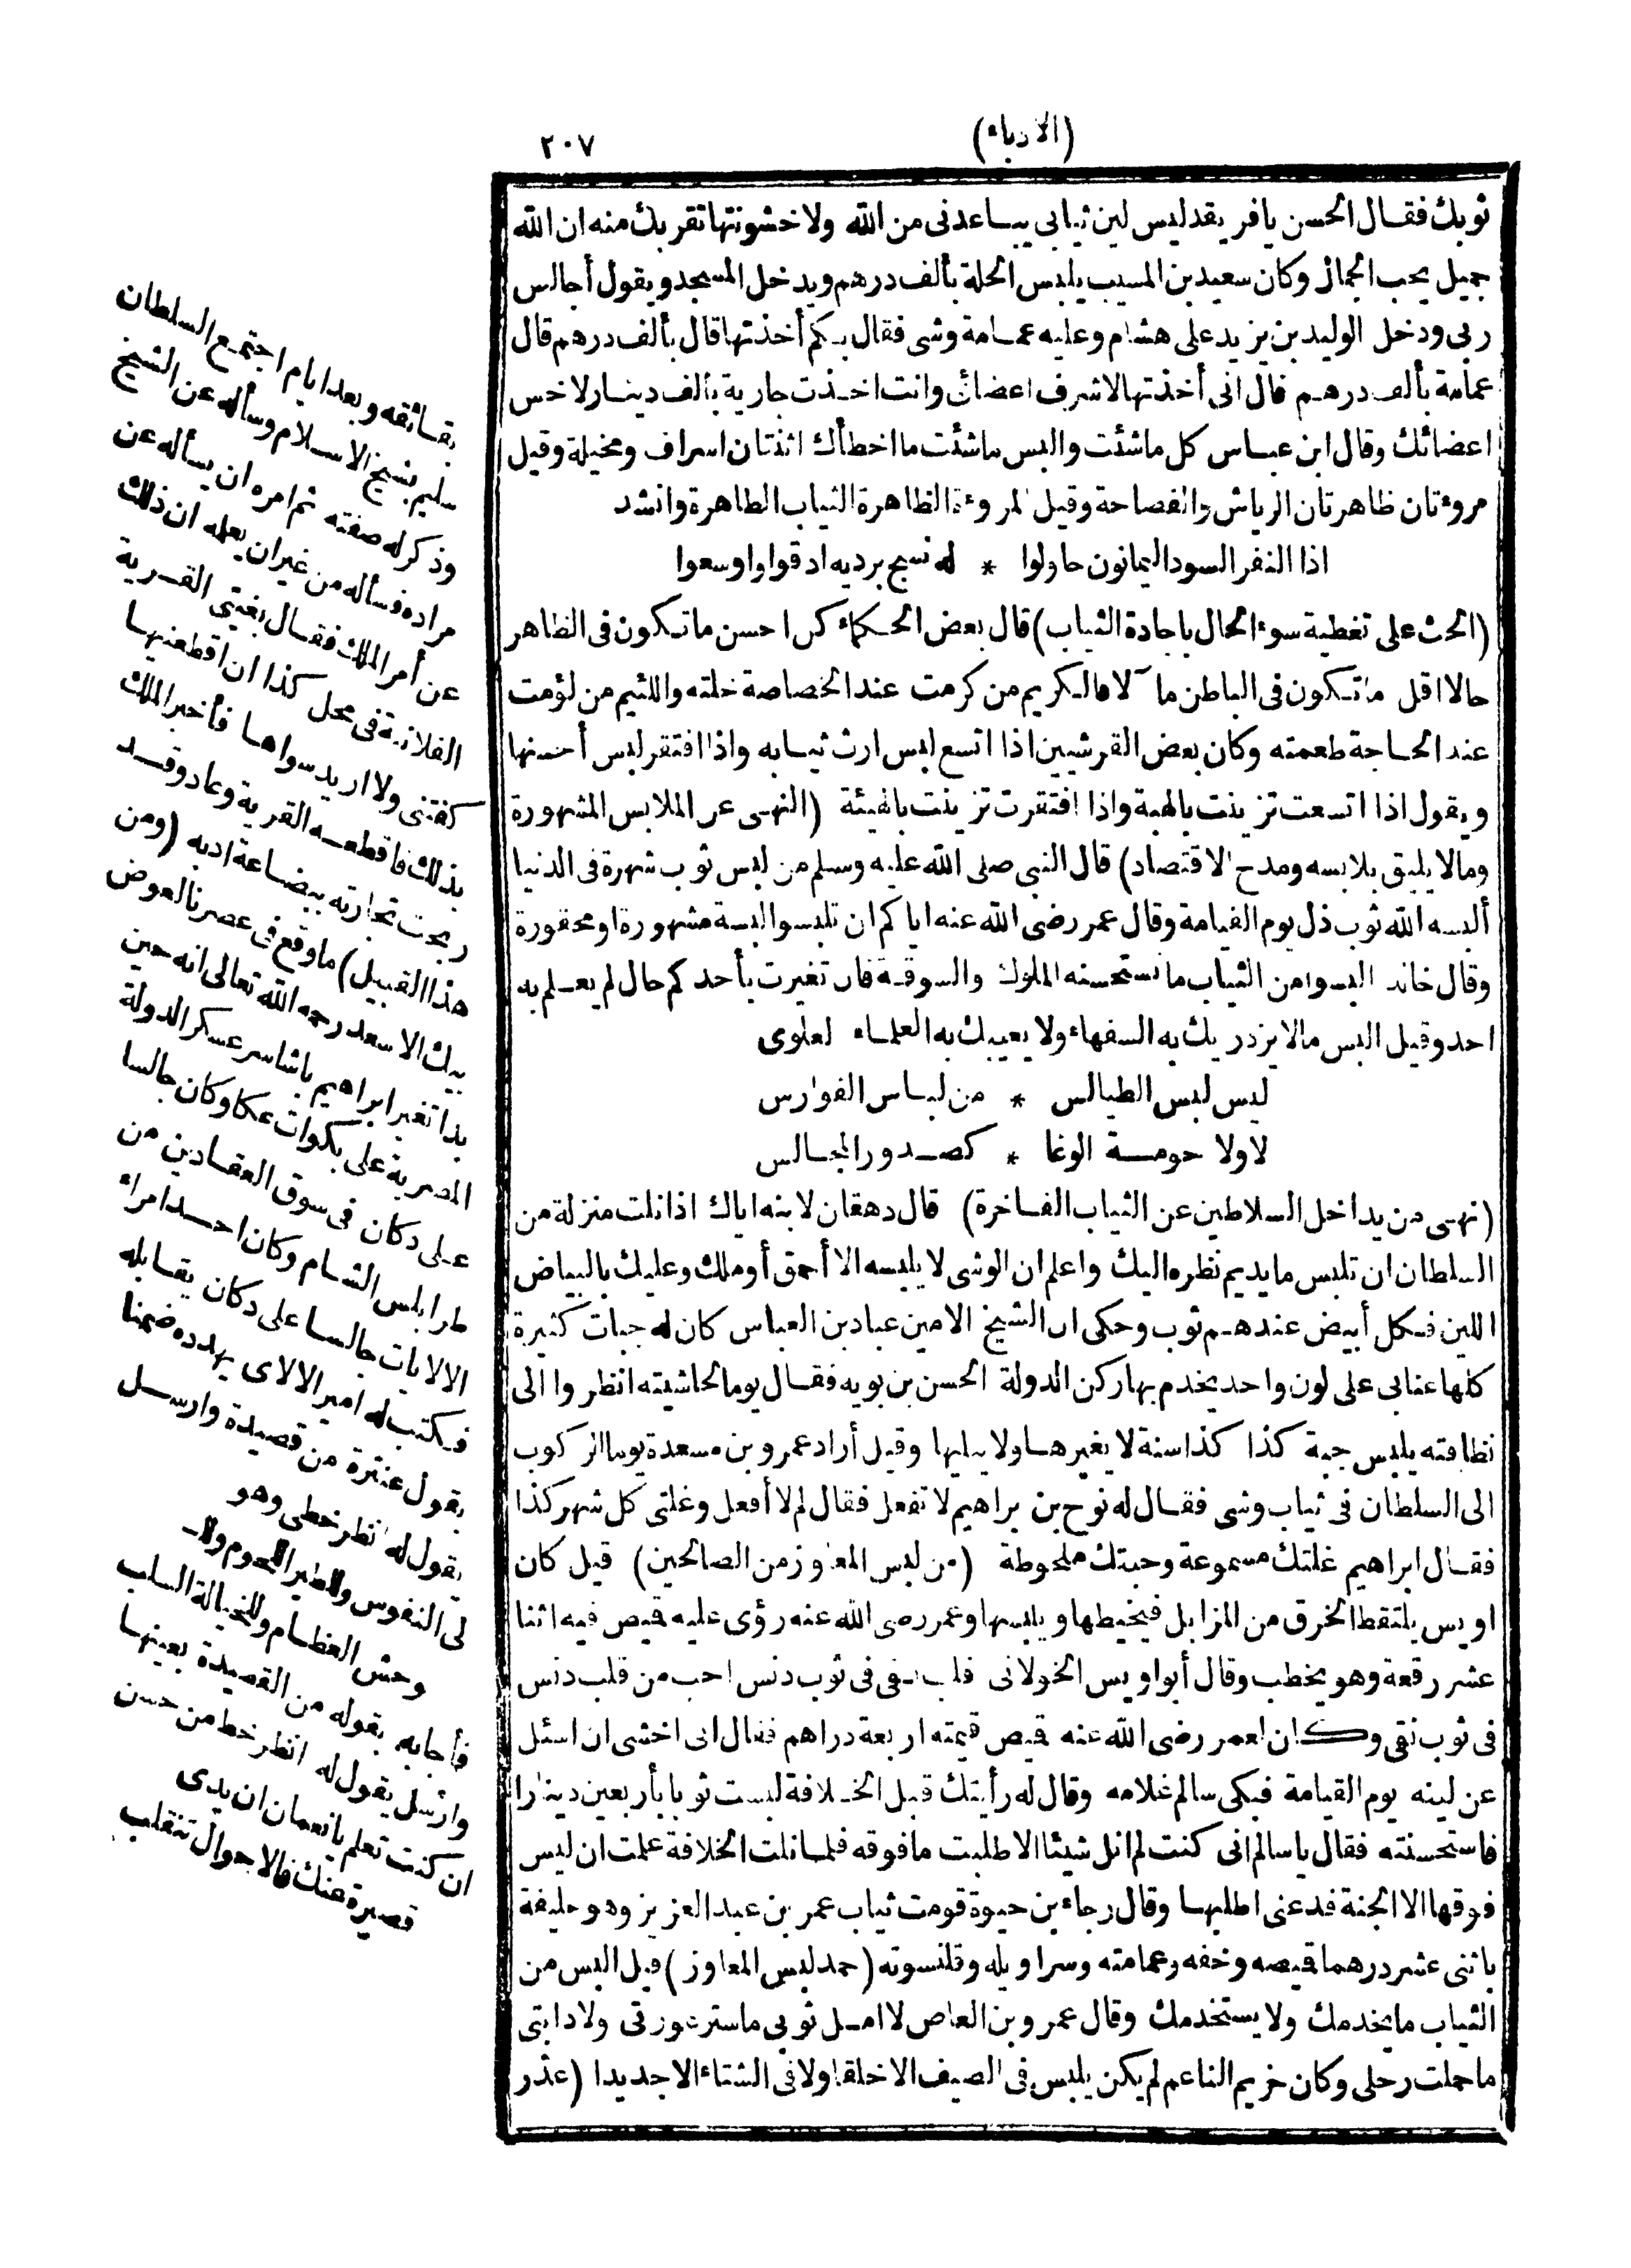 (الادباء)
٢٠٧
ثوبك فقال الحسن يافر يقد ليس لين ثيابى يباعدنى من الله ولا خشونتها تقربك منه ان الله
جميل يحب الجمال وكان سعيد بن المسيب يلبس الحلة بألف درهم ويدخل المسجد ويقول أجالس
ربى ودخل الوليد بن يزيد على هشام وعليه عمامة وشى فقال بكم أخذتها قال بألف درهم قال
عمامة بألف درهم قال انى أخذتها لاشرف اعضائى وانت اخذت جارية بألف دينار لاخس
اعضائك وقال ابن عباس كل ماشئت والبس ماشئت ما اخطأك اثنتان اسراف ومخيلة وقيل
مروءتان ظاهرتان الرياش والفصاحة وقيل المروءة الظاهرة الثياب الطاهرة وانشد
اذا النفر السود اليمانون حاولوا * له نسج برديه ادقوا واوسعوا
(الحث على تغطية سوء الحال باجادة الثياب) قال بعض الحكماء كن احسن ماتكون فى الظاهر
حالا اقل ماتكون فى الباطن مآلا فالكريم من كرمت عند الخصاصة خلته واللئيم من لؤمت
عند الحاجة طعمته وكان بعض القرشيين اذا اتسع لبس ارث ثيابه واذا افتقر لبس أحسنها
ويقول اذا اتسعت تزينت بالهبة واذا افتقرت تزينت بالهيئة (النهى عن الملابس المشهورة
ومالا يليق بلابسه ومدح الاقتصاد) قال النبى صلى الله عليه وسلم من لبس ثوب شهرة فى الدنيا
ألبسه الله ثوب ذل يوم القيامة وقال عمر رضى الله عنه اياكم ان تلبسوا لبسة مشهورة او محقورة
وقال خالد البسوا من الثياب ما تستحسنه الملوك والسوقة فان تغيرت بأحدكم حال لم يعلم به
احد وقيل البس مالا يزدريك به السفهاء ولا يعيبك به العلماء لعلوى
ليس لبس الطيالس * من لباس الفوارس
لا ولا حومة الوغا * كصدور المجالس
(نهى من يداخل السلاطين عن الثياب الفاخرة) قال دهقان لابنه اياك اذا نلت منزلة من
السلطان ان تلبس ما يديم نظره اليك واعلم ان الوشى لا يلبسه الا أحمق أو ملك وعليك بالبياض
اللين فكل أبيض عندهم ثوب وحكى ان الشيخ الامين عباد بن العباس كان له جبات كثيرة
كلها عنابى على لون واحد يخدم بها ركن الدولة الحسن بن بويه فقال يوما لحاشيته انظروا الى
نظافته يلبس جبة كذا كذا سنة لا يغيرها ولا يبليها وقيل أراد عمرو بن مسعدة يوما الركوب
الى السلطان فى ثياب وشى فقال له نوح بن براهيم لا تفعل فقال لم لا أفعل وغلتى كل شهر كذا
فقال ابراهيم غلتك مسموعة وجبتك ملحوظة (من لبس المعاوز من الصالحين) قيل كان
اويس يلتقط الخرق من المزابل فيخيطها ويلبسها وعمر رضى الله عنه رؤى عليه قميص فيه اثنا
عشر رقعة وهو يخطب وقال أبو اويس الخولانى قلب نقى فى ثوب دنس احب من قلب دنس
فى ثوب نقى وكان لعمر رضى الله عنه قميص قيمته اربعة دراهم فقال انى اخشى ان اسئل
عن لينه يوم القيامة فبكى سالم غلامه وقال له رأيتك قبل الخلافة لبست ثوبا بأربعين دينارا
فاستحسنته فقال يا سالم انى كنت لم انل شيئا الا طلبت ما فوقه فلما نلت الخلافة علمت ان ليس
فوقها الا الجنة فدعنى اطلبها وقال رجاء بن حيوة قومت ثياب عمر بن عبد العزيز وهو خليفة
باثنى عشر درهما قميصه وخفه وعمامته وسراويله وقلنسوته (حمد لبس المعاوز) قيل البس من
الثياب مايخدمك ولا يستخدمك وقال عمرو بن العاص لا امل ثوبى ماستر عورتى ولا دابتى
ماحملت رحلى وكان خريم الناعم لم يكن يلبس فى الصيف الا خلقا ولا فى الشتاء الا جديدا (عذر
بقائقه وبعد ايام اجتمع السلطان
سليم بشيخ الاسلام وسأله عن الشيخ
وذكر له صفته ثم امره ان يسأله عن
مراده فسأله من غير ان يعلمه ان ذلك
عن أمر الملك فقال بغيتى القرية
الفلانية فى محل كذا ان اقطعنيها
كفتنى ولا اريد سواها فأخبر الملك
بذلك فاقطعه القرية وعاد وقد
ربحت تجارته ببضاعة ادبه (ومن
هذا القبيل) ماوقع فى عصرنا لعوض
بيك الاسعد رحمه الله تعالى انه حين
بدا تغير ابراهيم باشا سر عسكر الدولة
المصرية على بكوات عكا وكان جالسا
على دكان فى سوق العقادين من
طرابلس الشام وكان احد امراء
الالايات جالسا على دكان يقابله
فكتب له امير الالاى يهدده ضمنا
بقول عنترة من قصيدة وارسل
يقول له انظر خطى وهو
لى النفوس وللطير اللحوم ولل
وحش العظام وللخيالة السلب
فأجابه بقوله من القصيدة بعينها
وارسل يقول له انظر خط من حسن
ان كنت تعلم يانعمان ان يدى
قصيرة عنك فالاحوال تنقلب